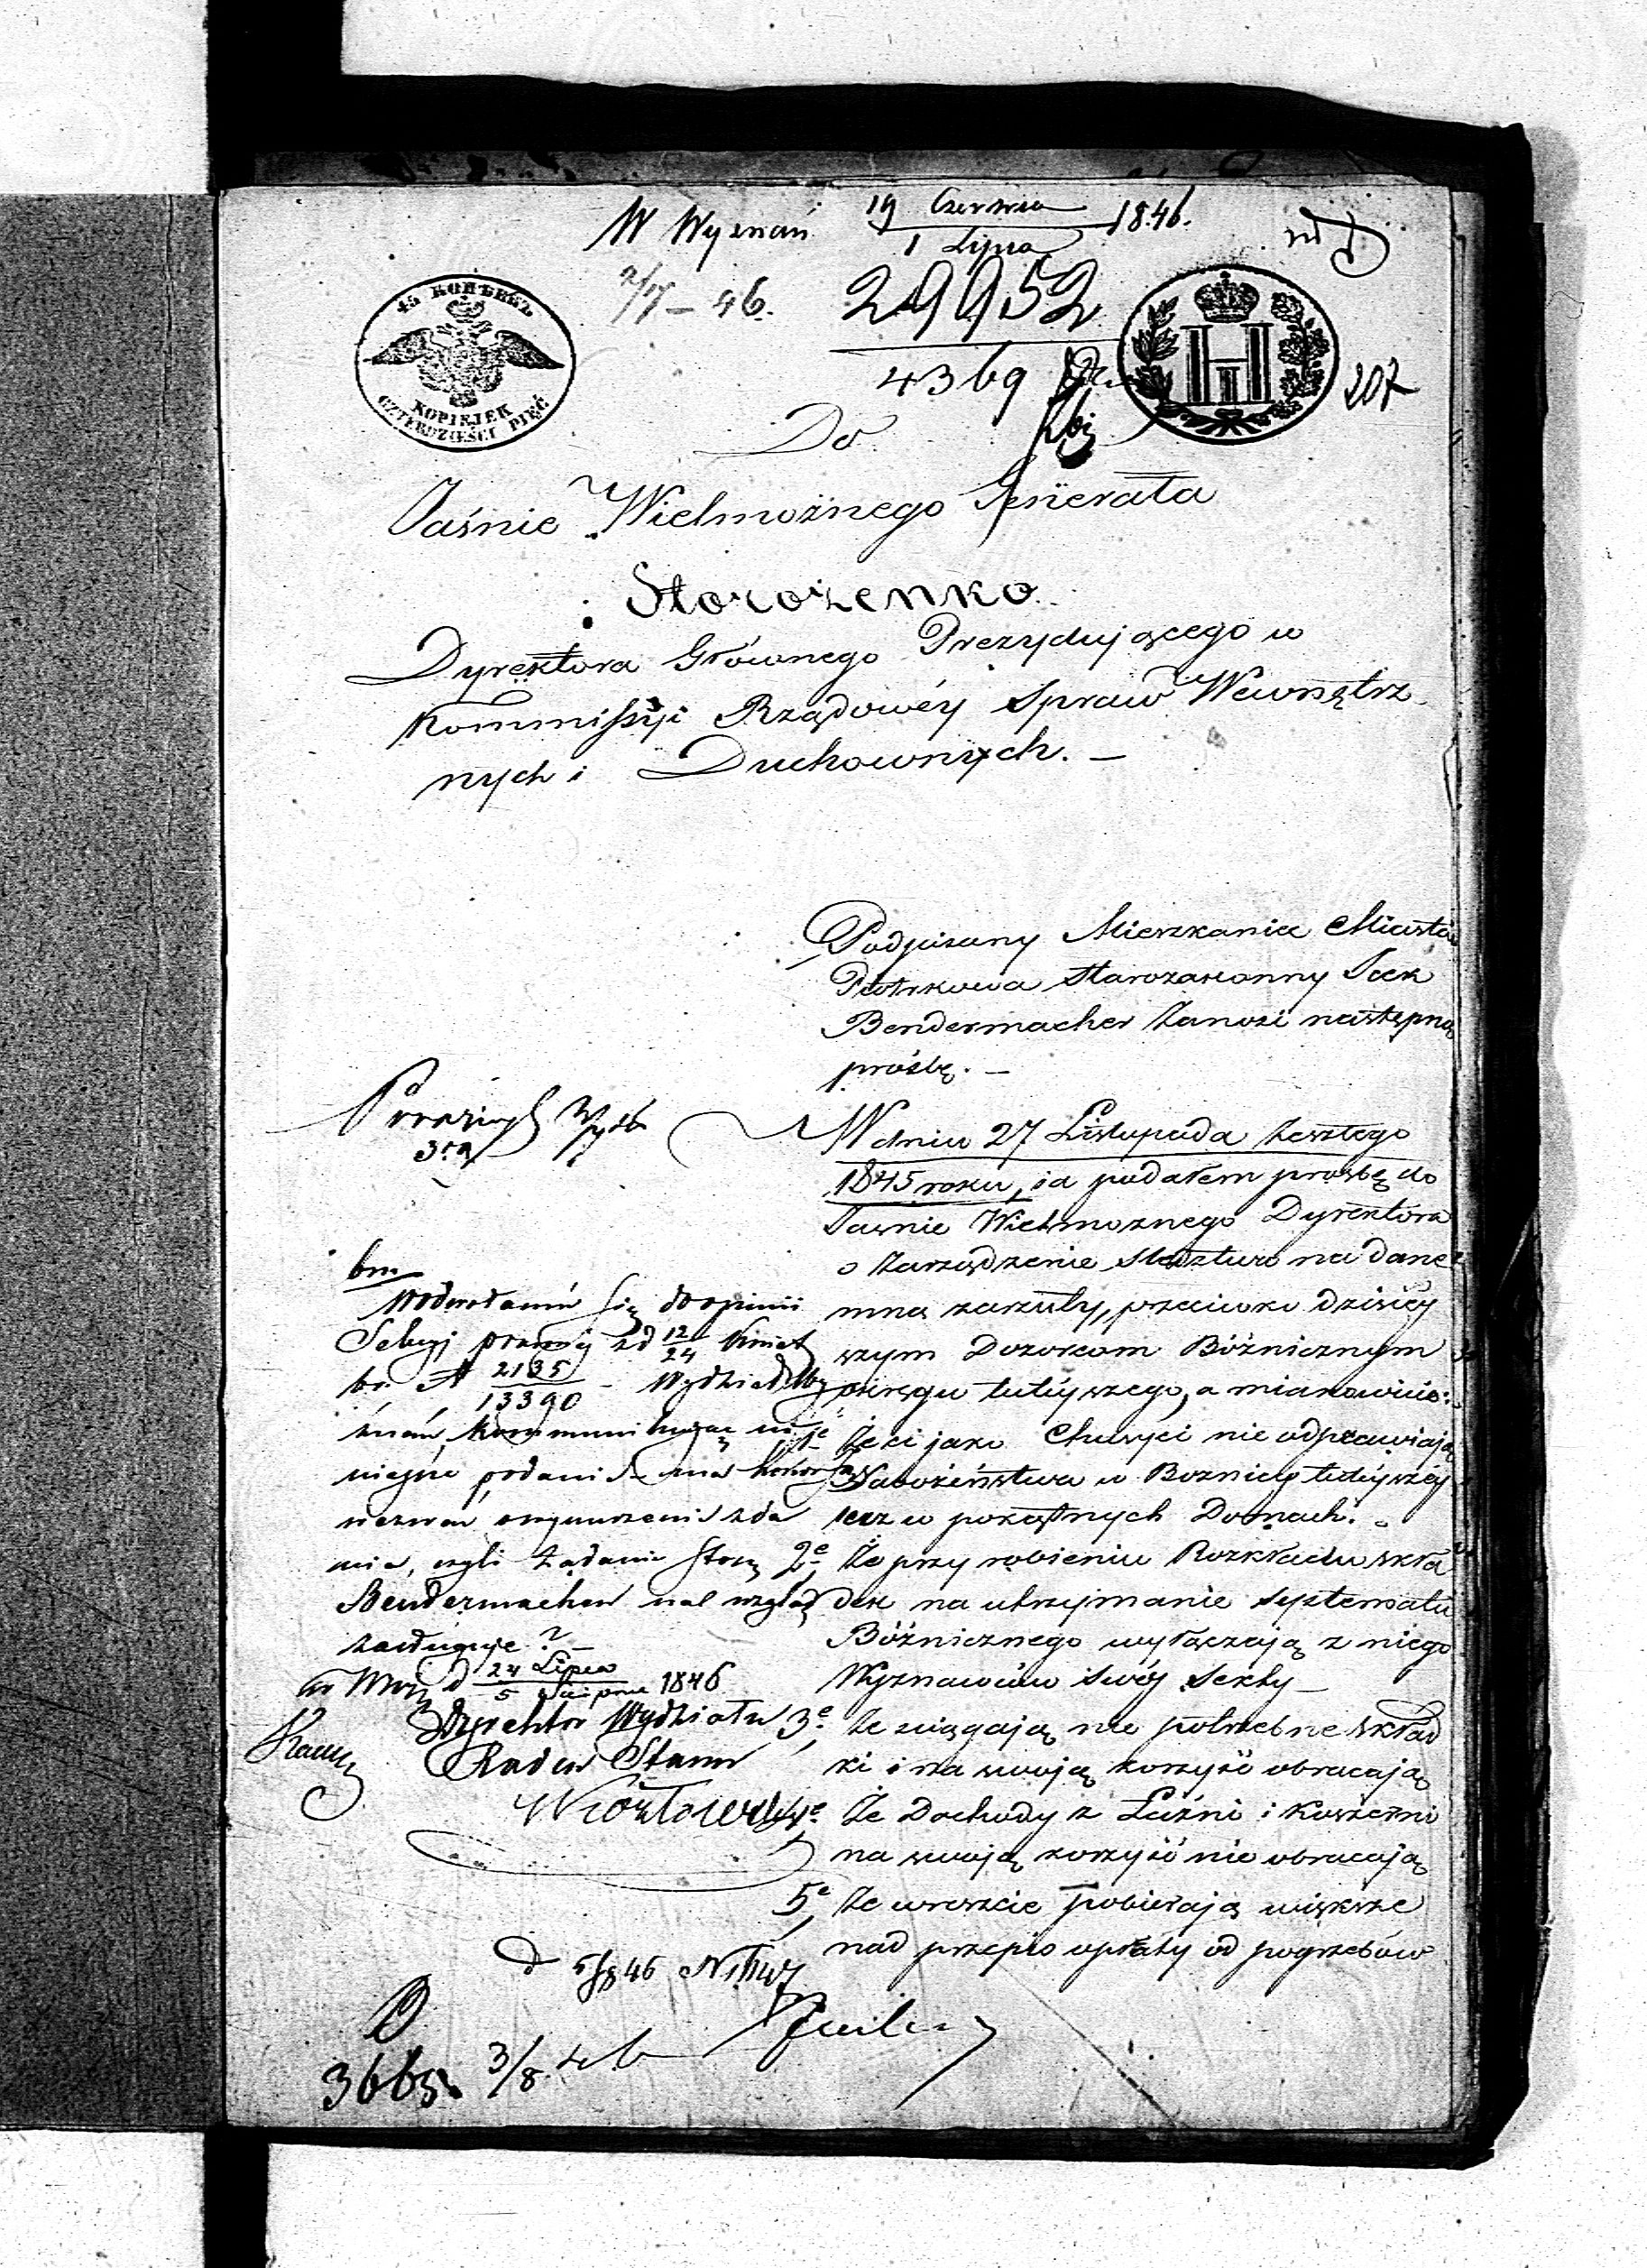 W Wyznań 19 Czerwca 1846.
1 Lipca
2/7 – 46. 29952
4369
207
45 КОПѢЕКЪ
KOPIEJEK
CZTERDZIEŚCI PIĘĆ
Do
Jaśnie Wielmożnego Jenerała
Storożenko
Dyrektora Głównego Prezydującego w
Kommissyi Rządowéy Spraw Wewnętrz
nych i Duchownych. –
Podpisany Mieszkaniec Miasta
Piotrkowa Starozakonny Icek
Bendermacher zanosi następną
prośbę. –
W dniu 27 Listopada zeszłego
1845 roku, ia podałem prośbę do
Jaśnie Wielmożnego Dyrektora
o zarządzenie śledztwa na dane
mną zarzuty, przeciwko dzisiéy
szym Dozorcom Bóżnicznym
okręgu tutéyszego, a mianowicie:
że ci jako Chusyci nie odprawiają
Nabożeństwa w Boznicy tutéyszéy
lecz w pokątnych Domach.
2e że przy robieniu Rozkładu skła
dek na utrzymanie systematu
Bóżnicznego wyłączają z niego
Wyznawców swéj Sekty –
3e że sciągają nie potrzebne skład
ki i na swoją korzyść obracają
4e że Dochody z Łaźni i Koszerni
na swoją korzyść nie obracają
5e że wreszcie pobierają większe
nad przepis opłaty od pogrzebów
bm
W odwołaniu się do opinii
Sekcyi prawnéj z d 12/24 Kwiet
br. N 2135/13390 – Wydział Wy
znań, kommunikując ni
niejsze podanie ma honor
wezwać o wynurzenie zda
nia, czyli żądanie Starz
Bendermacher na wzgląd
zasługuje? –
w Warsz d 24 Lipca
5 Sierpnia 1846
Dyrektor Wydziału
Radca Stanu
3665. 3/8